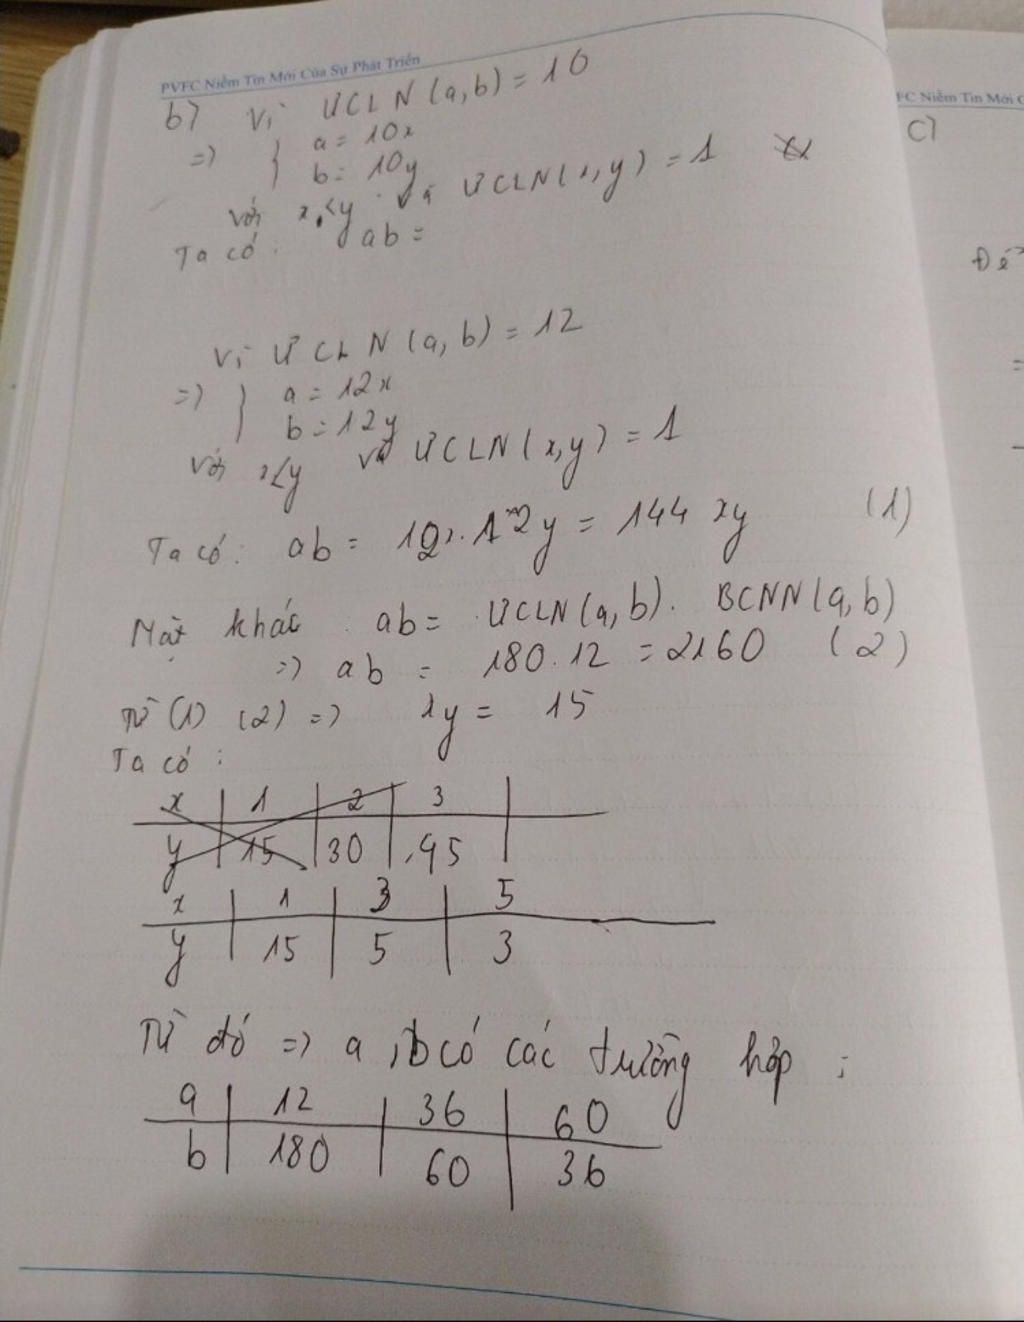 PVFC Niềm Tin Mới Của Sự Phát Triển
b) Vì ƯCLN(a,b) = 10
=> } a = 10x
b = 10y
với x<y và ƯCLN(x,y) = 1
Ta có: ab =
Vì ƯCLN(a,b) = 12
=> } a = 12x
b = 12y
với x<y và ƯCLN(x,y) = 1
Ta có: ab = 12x.12y = 144 xy (1)
Mặt khác ab = ƯCLN(a,b). BCNN(a,b)
=> ab = 180.12 = 2160 (2)
Từ (1) (2) => xy = 15
Ta có:
x 1 2 3
y 15 30 45
x 1 3 5
y 15 5 3
Từ đó => a, b có các trường hợp:
a 12 36 60
b 180 60 36
FC Niềm Tin Mới C
C)
Đề
=